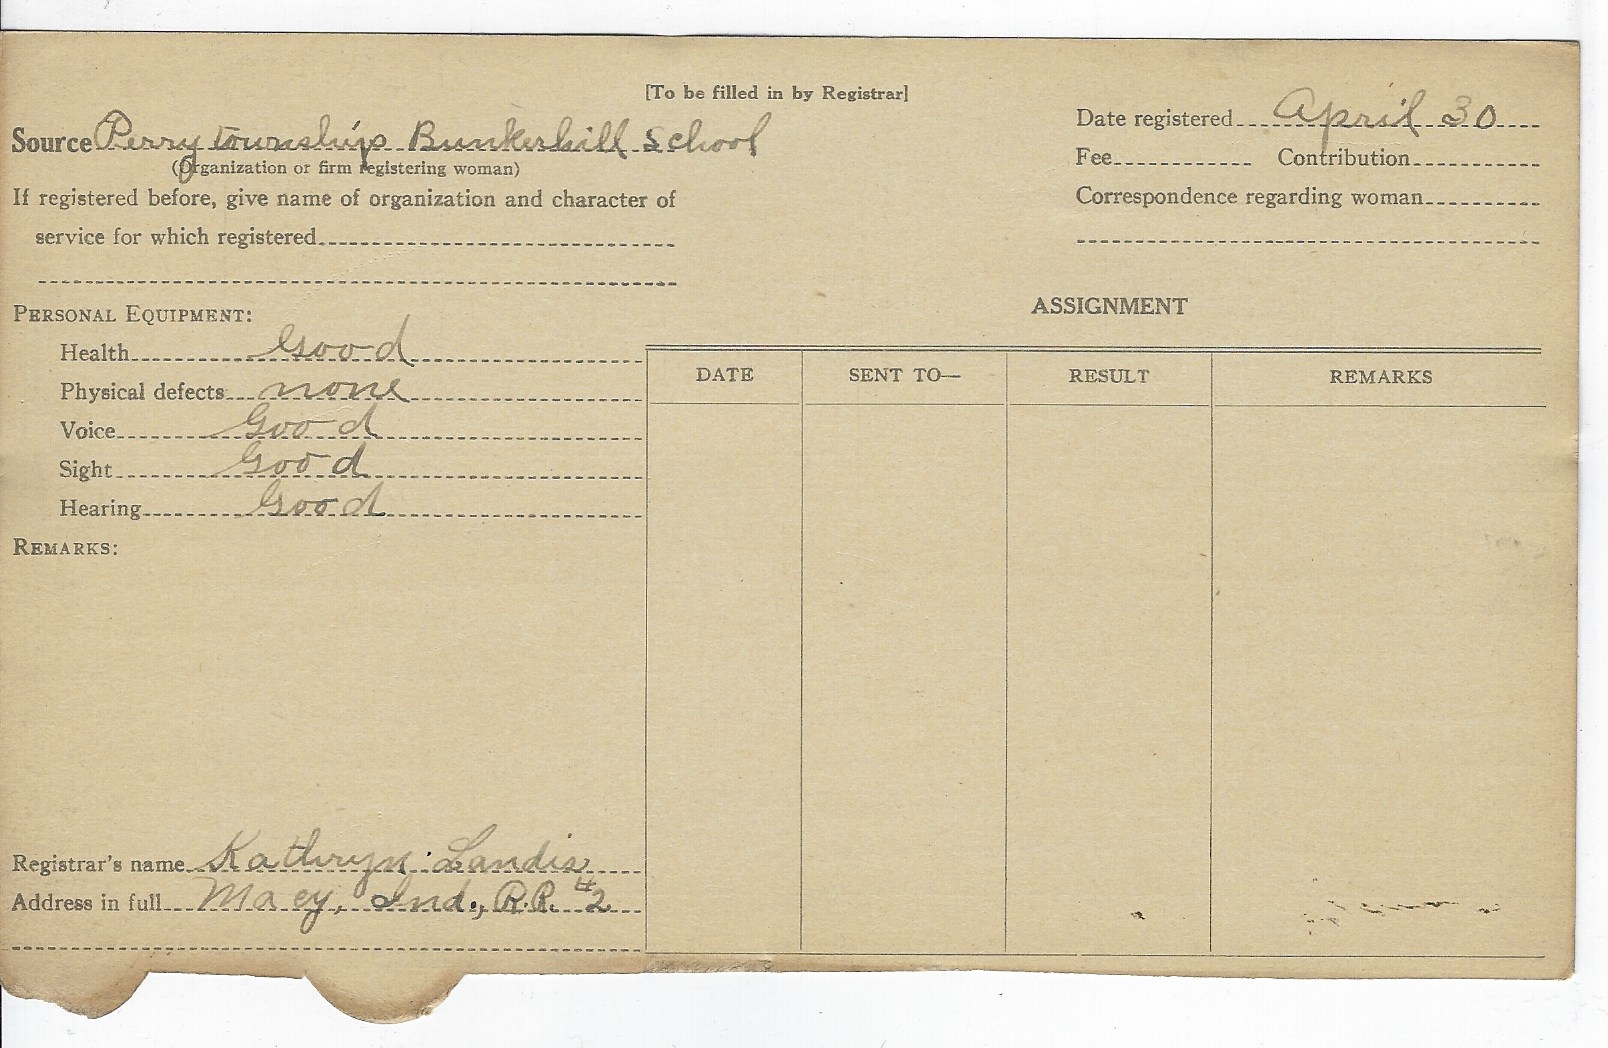 [To be filled in by Registrar]
Source Perry township Bunkerhill School
(Organization or firm registering woman)
If registered before, give name of organization and character of
service for which registered
Date registered April 30
Fee Contribution
Correspondence regarding woman
PERSONAL EQUIPMENT:
Health Good
Physical defects none
Voice Good
Sight Good
Hearing Good
REMARKS:
ASSIGNMENT
DATE SENT TO— RESULT REMARKS
Registrar's name Kathryn Landis
Address in full Macy, Ind., R.R. #2